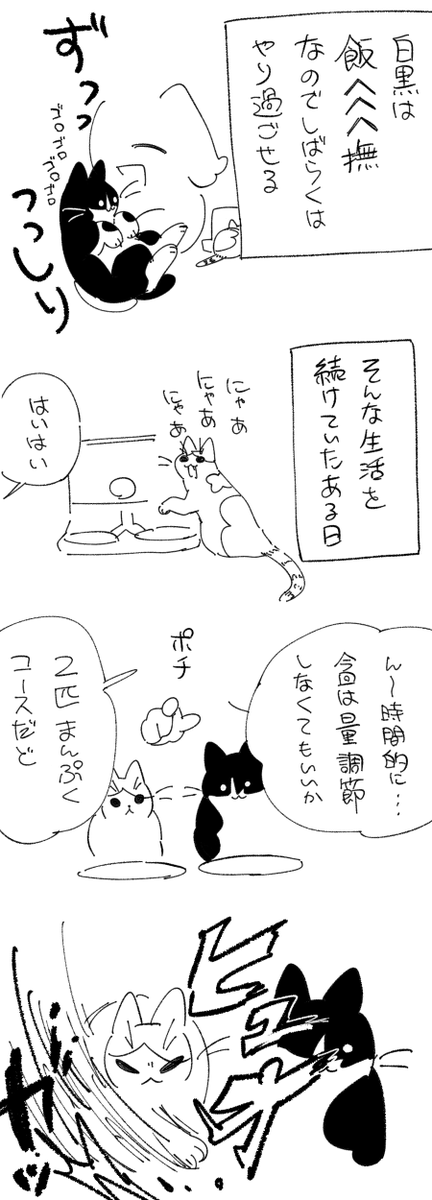 白黒は
飯<<<撫
なのでしばらくは
やり過ごせる
ずっっ
っっしり
ゴロゴロ
ゴロゴロ
そんな生活を
続けていたある日
にゃあ
にゃあ
にゃあ
はいはい
ん〜時間的に…
今回は量調節
しなくてもいいか
ポチ
2匹まんぷく
コースだど